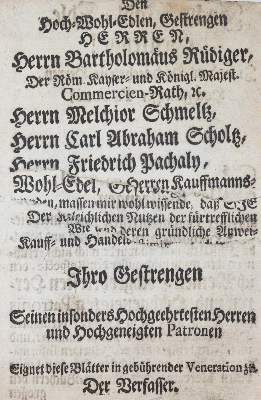 Den
Hoch-Wohl-Edlen, Gestrengen
HERREN,
Herrn Bartholomäus Rüdiger,
Der Röm. Kayser- und Königl. Majest.
Commercien-Rath, ꝛc.
Herrn Melchior Schmeltz,
Herrn Carl Abraham Scholtz,
Herrn Friedrich Pachaly,
Wohl-Edel, Herrn Kauffmanns-
massen mir wohl wissende, daß SIE
Der Nutzen der fürtrefflichen
deren gründliche Anwei-
Kauff- und Handen
Ihro Gestrengen
Seinen insonders Hochgeehrtesten Herren
und Hochgeneigten Patronen
Eignet diese Blätter in gebührender Veneration zu
Der Verfasser.